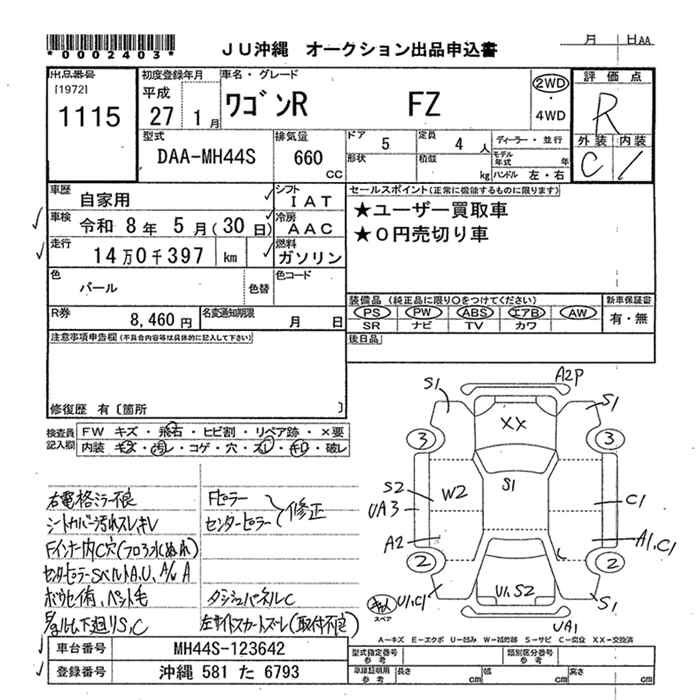 *0002403*
JU沖縄 オークション出品申込書
月 日AA
出品番号
[1972]
1115
初度登録年月
平成
27 1月
車名・グレード
ワゴンR FZ
2WD
・
4WD
評価点
R
外装 内装
C
型式
DAA-MH44S
排気量
660
CC
ドア 5
形状
定員 4 人
積載 kg
ディーラー・並行
モデル年式 年
ハンドル 左・右
車歴 自家用
シフト IAT
車検 令和 8年 5月(30日)
冷房 AAC
走行 14万0千397 km
燃料 ガソリン
色 パール 色替
色コード
R券 8,460円
名変通知期限 月 日
セールスポイント(正常に機能するものに限ります)
★ユーザー買取車
★0円売切り車
装備品(純正品に限り○をつけてください)
新車保証書
PS PW ABS エアB AW
有・無
SR ナビ TV カワ
後日品
注意事項申告欄(不具合内容等は具体的に記入して下さい)
修復歴 有〔箇所 〕
検査員記入欄
FW キズ・飛石・ヒビ割・リペア跡・×要
内装 キズ・汚レ・コゲ・穴・スレ・キレ・破レ
右電格ミラー不良
シートカバー汚れスレキレ
センターピラーSベルトA.U、A/W A
Fピラー
センターピラー
修正
ダッシュパネルC
左サイドスカートズレ(取付不良)
A2P
S1
S1
XX
3
3
S1
S2
W2
UA3
C1
A2
A1.C1
2
2
U1.S2
U1.C1
S1
UA1
スペア
A－キズ E－エクボ U－凹み W－補修跡 S－サビ C－腐食 XX－交換済
車台番号 MH44S-123642
登録番号 沖縄 581 た 6793
型式指定番号 参考
類別区分番号 参考
車庫証明用 参考 長さ cm 幅 cm 高さ cm